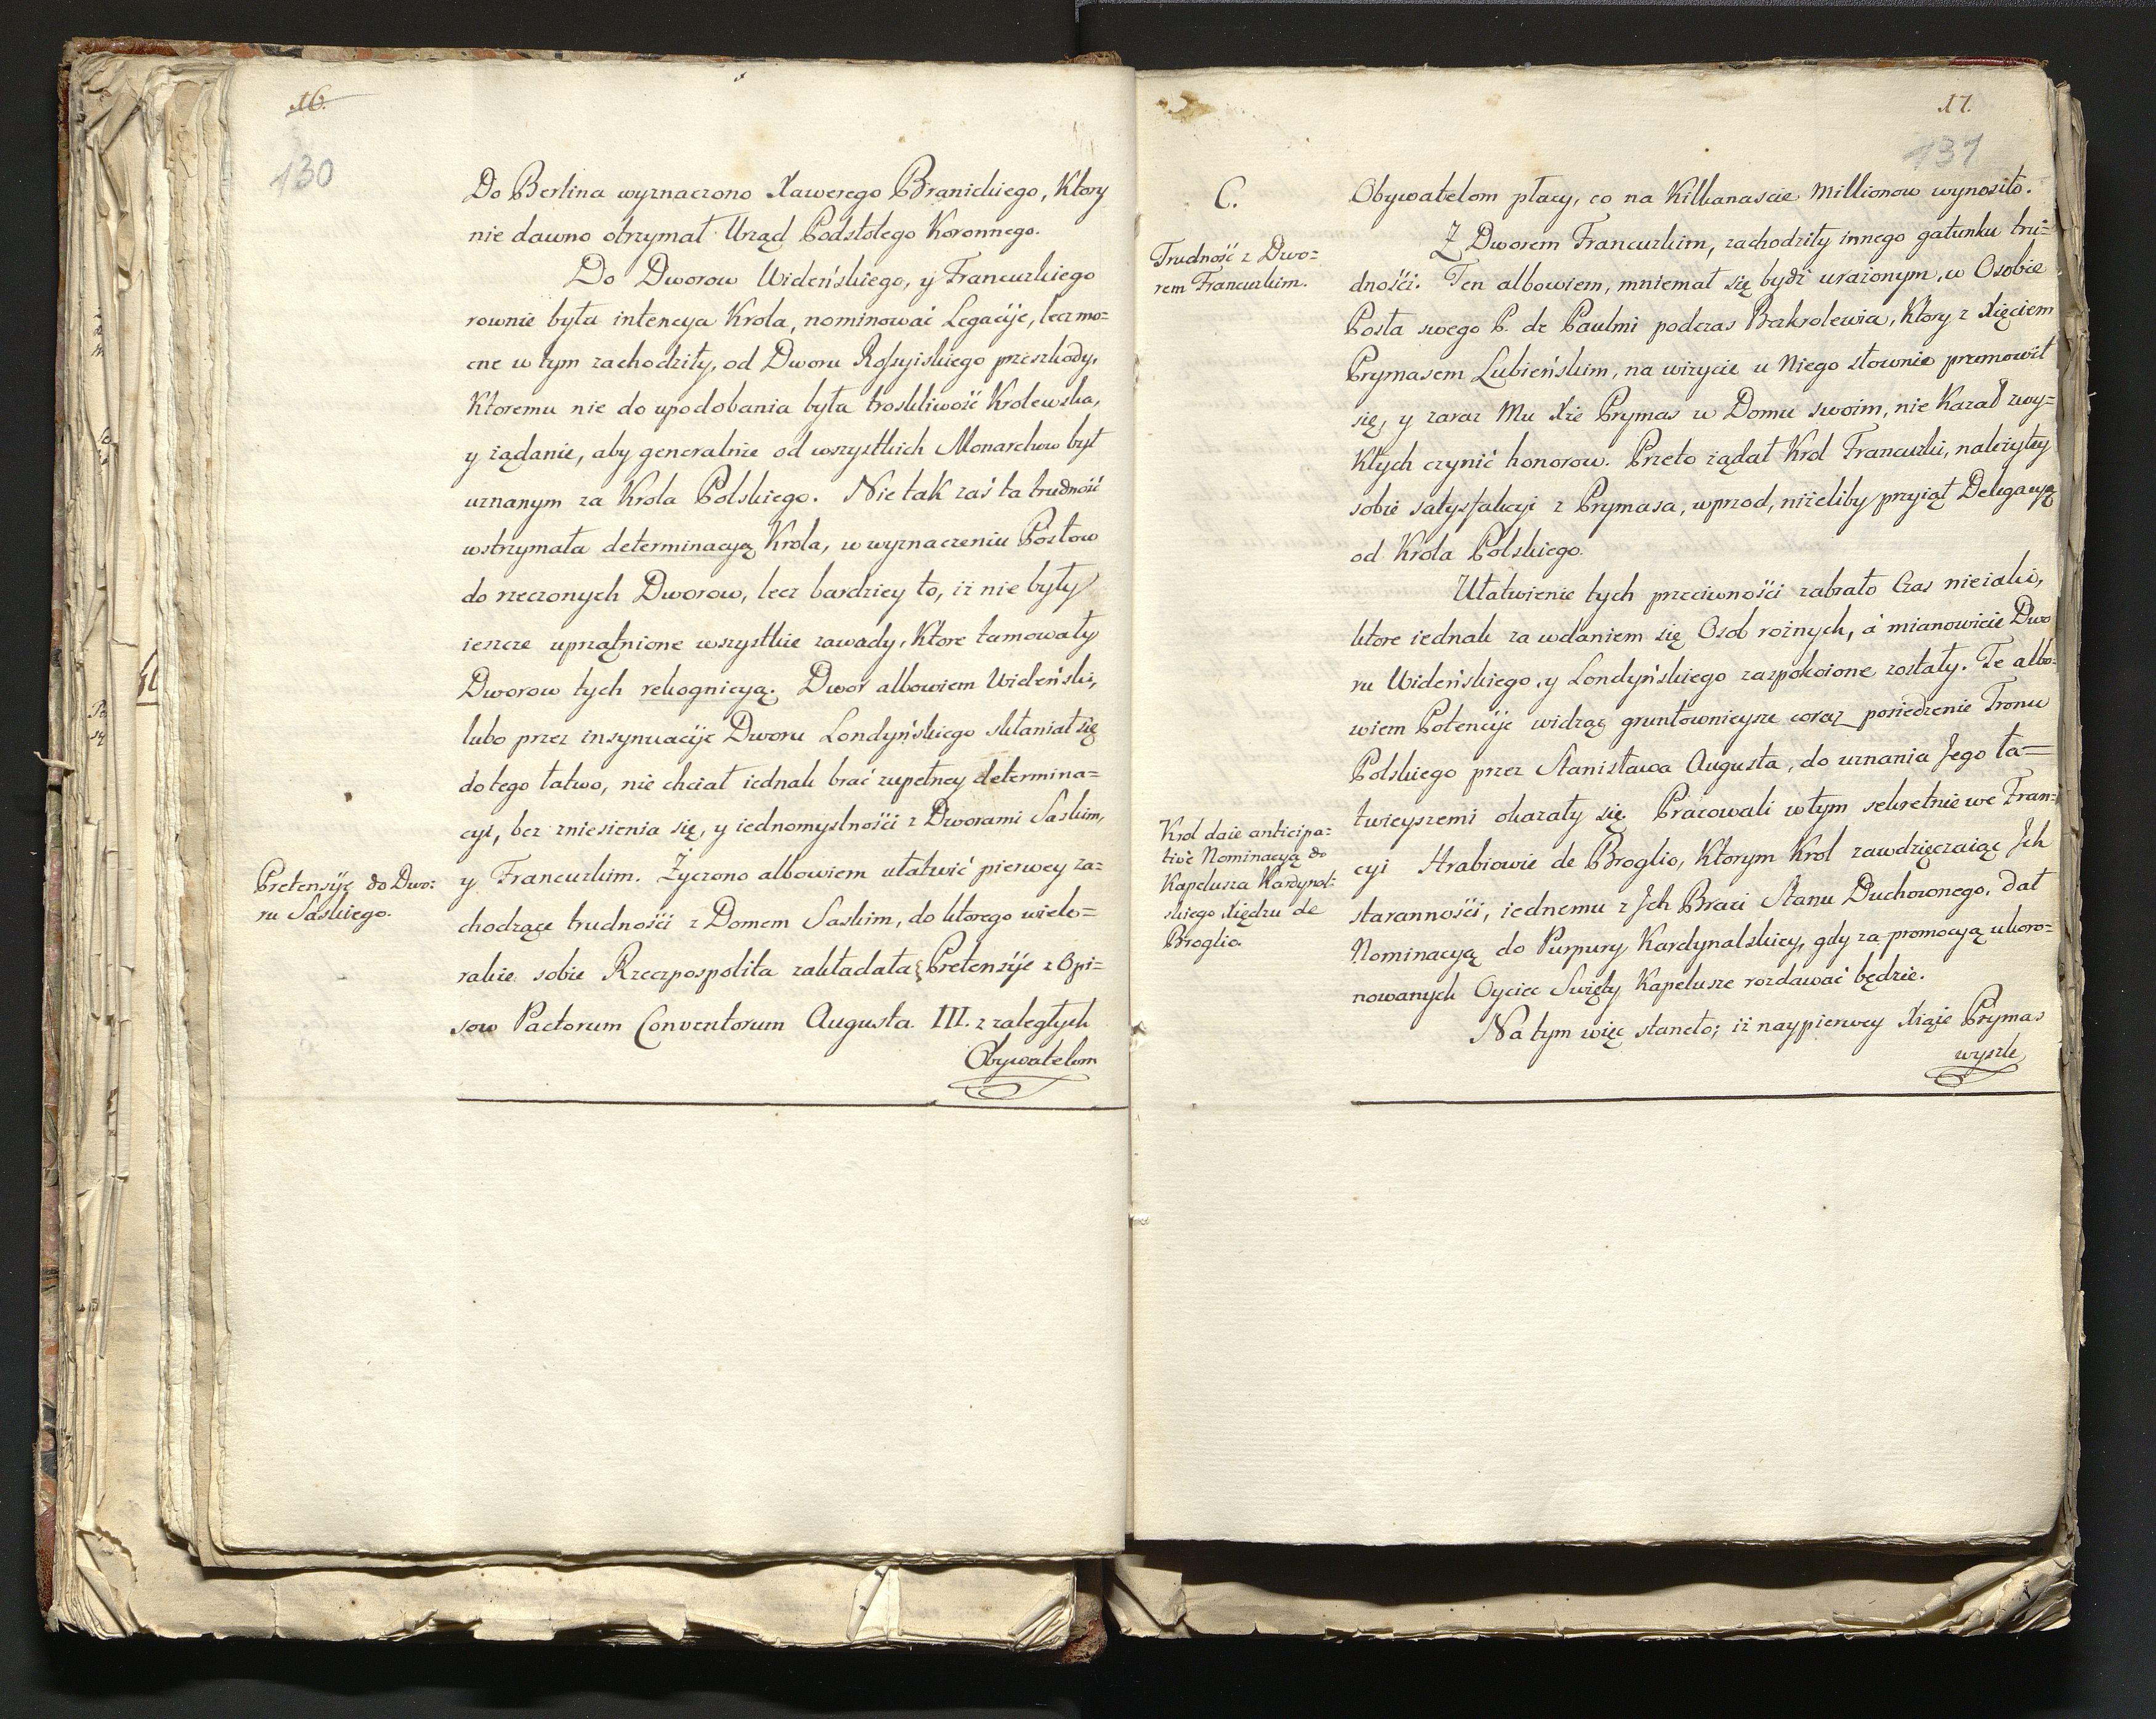 16.
130
Do Berlina wyznaczono Xawerego Branickiego, Ktory
nie dawno otrzymał Urząd Podstolego Koronnego.
Do Dworow Wideńskiego, y Francuzkiego
rownie była intencya Krola, nominować Legacije, lecz mo=
cne w tym zachodziły, od Dworu Rossyiskiego przeszkody.
Ktoremu nie do upodobania była troskliwość Krolewska,
y żądanie, aby generalnie od wszystkich Monarchow był
uznanym za Krola Polskiego. Nie tak zaś ta trudność
wstrzymała determinacyą Krola, w wyznaczeniu Posłow
do rzeczonych Dworow, lecz bardziey to, iż nie były
ieszcze uprzątnione wszystkie zawady, Ktore tamowały
Dworow tych rekognicyą. Dwor albowiem Wideński,
lubo przez insynuacije Dworu Londyńskiego skłaniał się
do tego łatwo, nie chciał iednak brać zupełney determina=
cyi, bez zniesienia się, y iednomyslności z Dworami Saskim,
y Francuzkim. Życzono albowiem ułatwić pierwey za=
chodzące trudności z Domem Saskim, do ktorego wielo=
rakie sobie Rzeczpospolita zakładała Pretensije z Opi=
sow Pactorum Conventorum Augusta III. z zaległych
Obywatelom
Pretensyę do Dwo:
ru Saskiego.
17.
131
C.
Trudność z Dwo=
rem Francuzkim.
Obywatelom płacy, co na Kilkanascie Millionow wynosiło.
Z Dworem Francuzkim, zachodziły innego gatunku tru=
dności. Ten albowiem, mniemał się bydź urażonym, w Osobie
Posła swego P. de Paulmi podczas Bezkrolewia, Ktory z Xięciem
Prymasem Lubieńskim, na wizycie u Niego słownie przemowił
się, y zaraz Mu Xże Prymas w Domu swoim, nie Kazał zwy=
kłych czynić honorow. Przeto żądał Krol Francuzki, należytey
sobie satysfakcyi z Prymasa, wprzod, niżeliby przyiął Delegacyą
od Krola Polskiego.
Ułatwienie tych przeciwności zabrało Czas nieiaki,
ktore iednak za wdaniem się Osob rożnych, á mianowicie Dwo
ru Wideńskiego, y Londyńskiego zaspokoione zostały. Te albo=
wiem Potencije widząc gruntownieysze coraz posiedzenie Tronu
Polskiego przez Stanisława Augusta, do uznania Jego ła=
twieyszemi okazały się. Pracowali w tym sekretnie we Fran=
cyi Hrabiowie de Broglio, Ktorym Krol zawdzięczaiąc Ich
staranności, iednemu z Ich Braci Stanu Duchownego, dał
Nominacyą do Purpury Kardynalskiey, gdy za promocyą ukoro=
nowanych Oyciec Swięty Kapelusze rozdawać będzie.
Na tym więc stanęło; iż naypierwey Xiąże Prymas
wyszle
Krol daie anticipa=
tive Nominacyą do
Kapelusza Kardynal:
skiego Xiędzu de
Broglio.